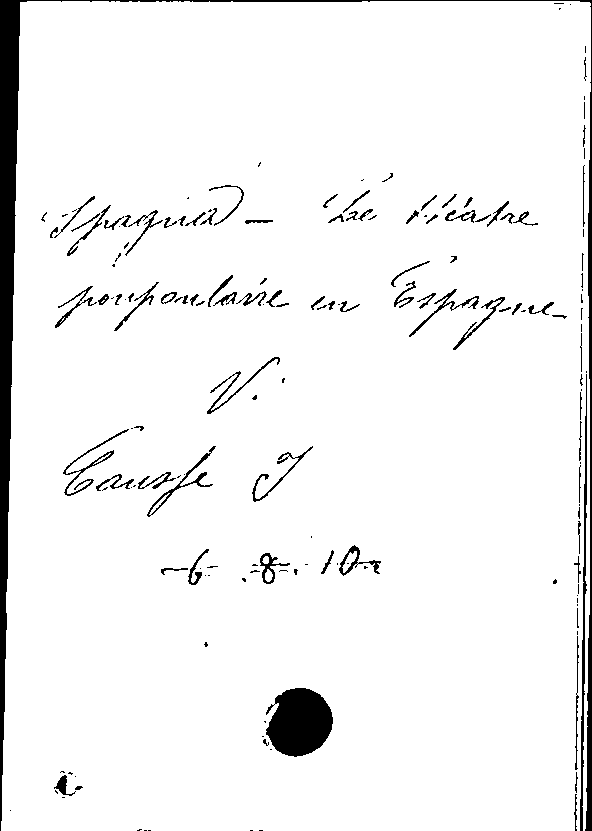 Spagna — Le théatre
poupoulaire en Espagne
V.
Causse J
6. 8. 10